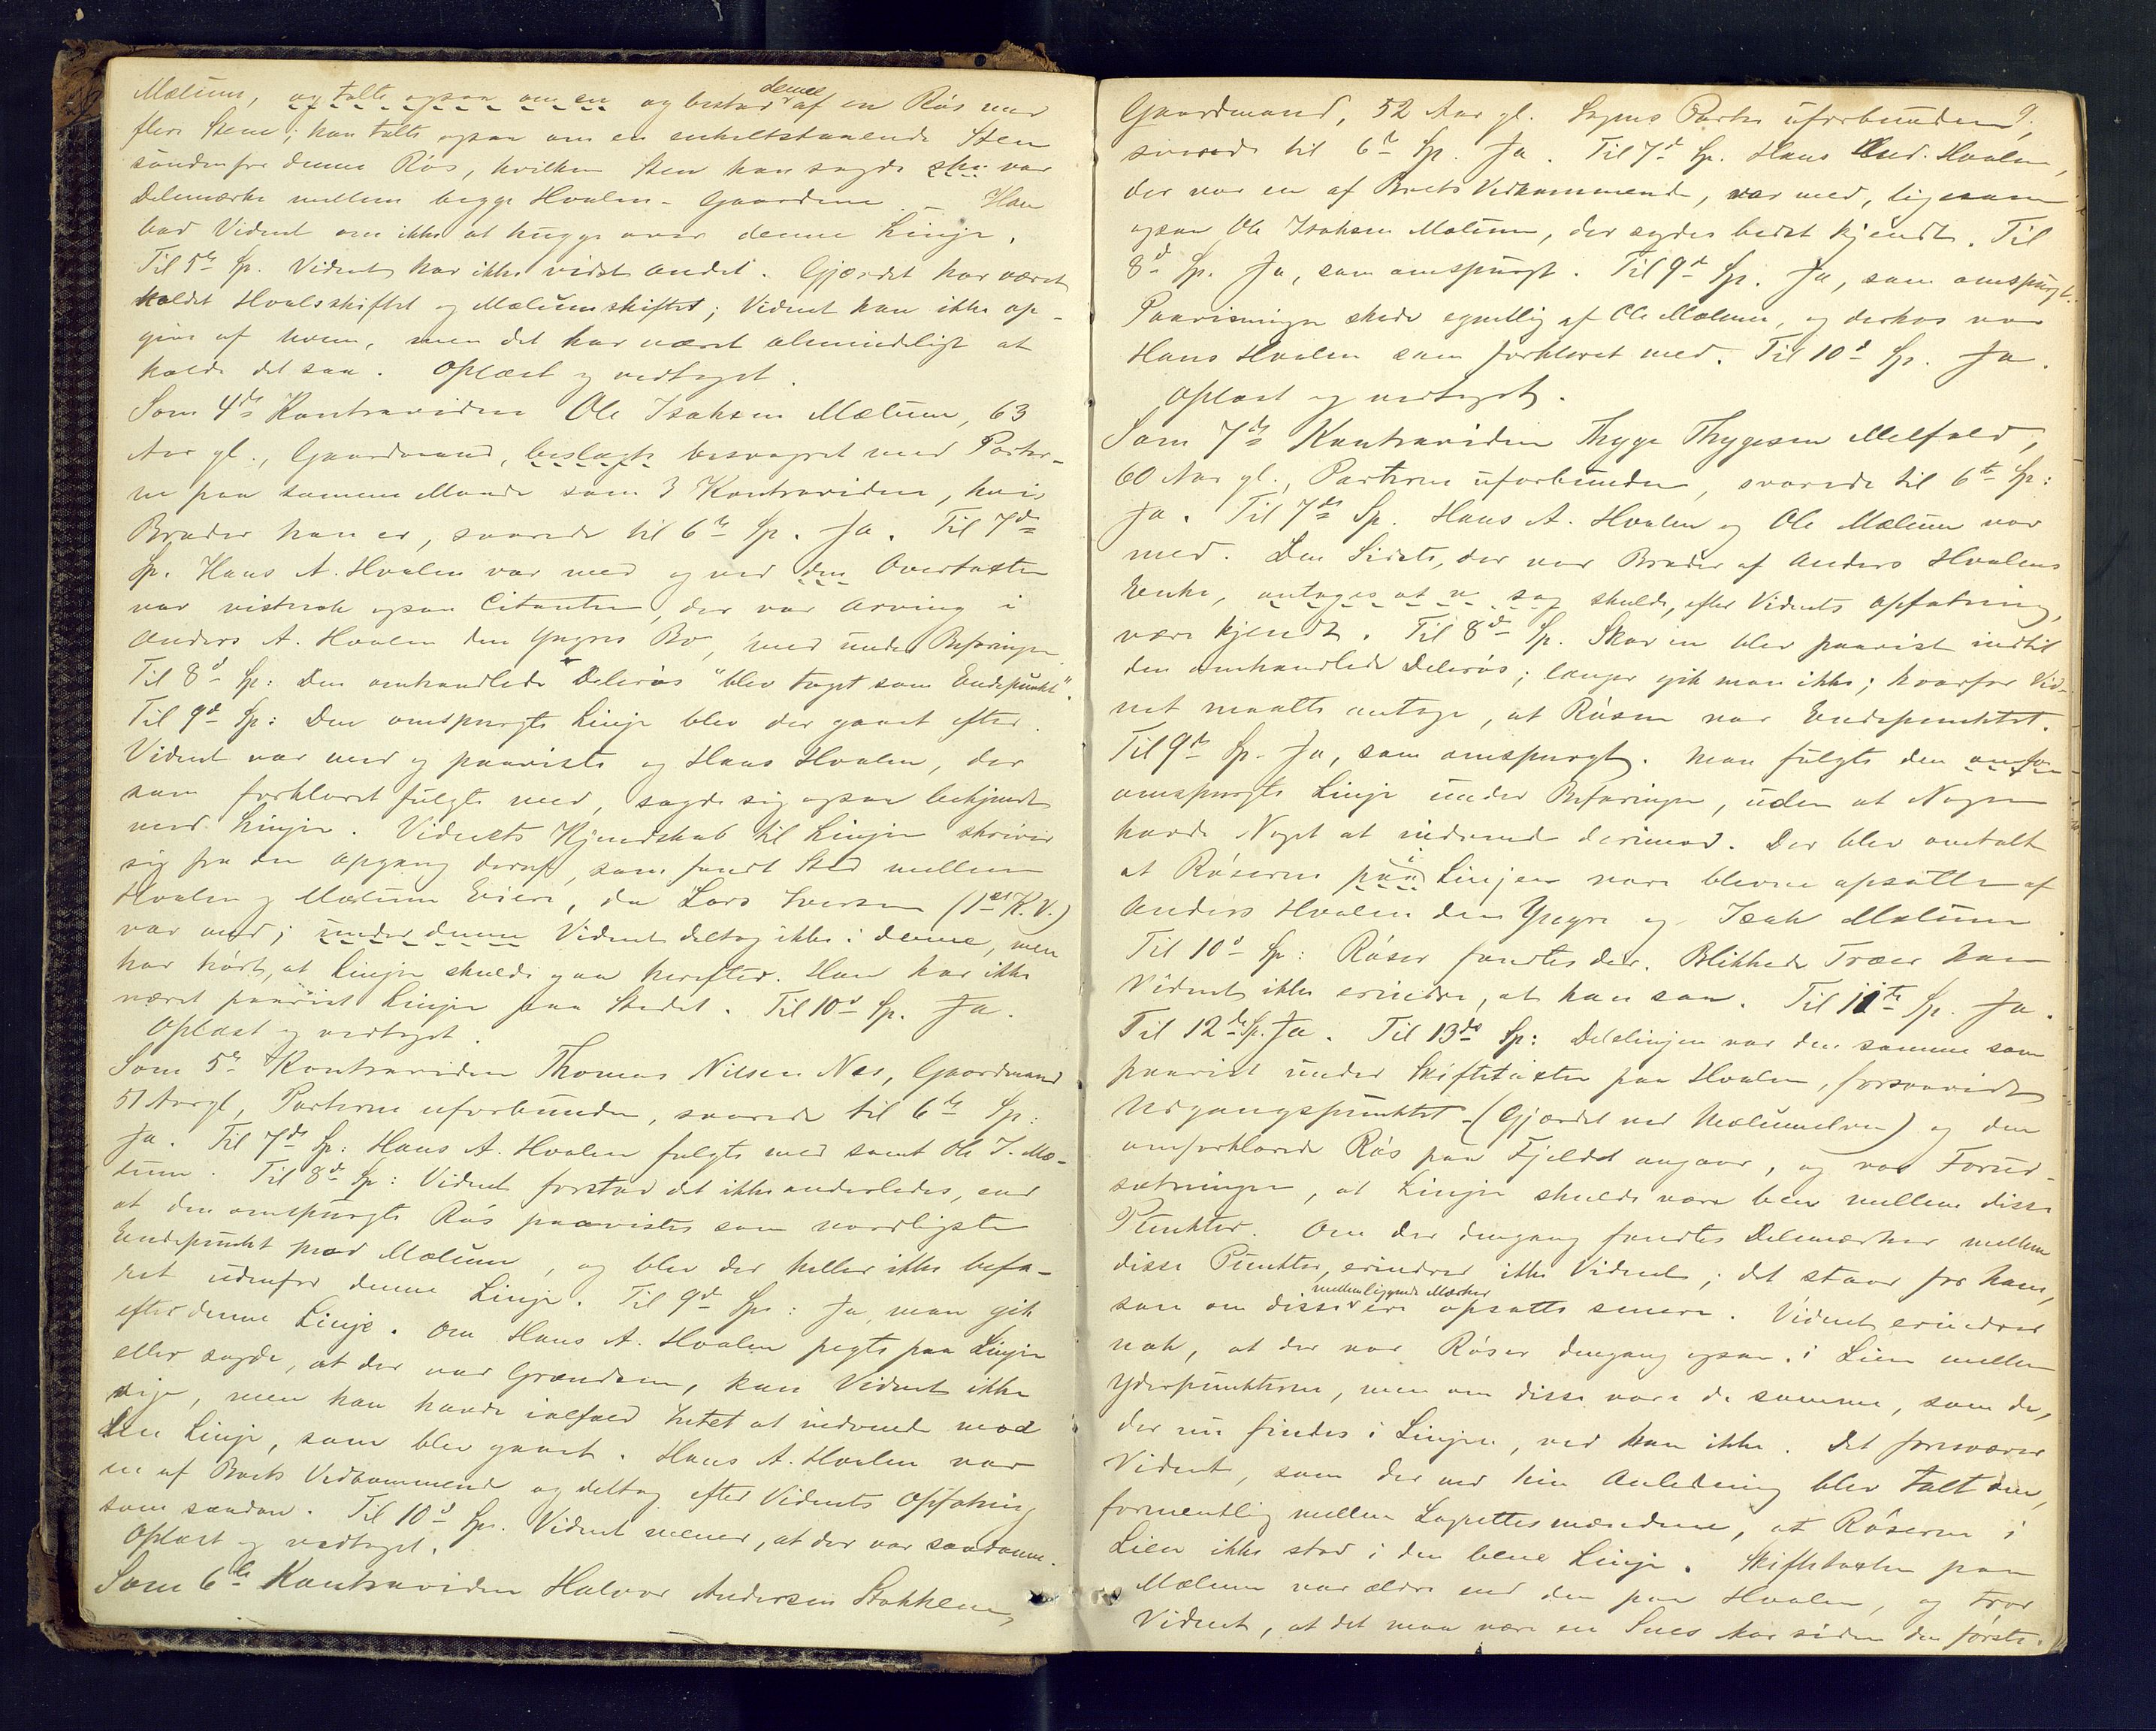 Mælum, og talte ogsaa om en og bestod denne af en Rös med
flere Stene; han talte ogsaa om en enkeltstaaende Sten
söndenfor denne Rös, hvilken Sten han sagde sku var
Delemærke mellem begge Hvalen-Gaardene. – Han
bad Vidnet om ikke at hugge over denne Linje.
Til 5te Sp. Vidnet har ikke vidst andet. Gjærdet har været
kaldet Hvalsskiftet og Mælumskiftet; Vidnet kan ikke op-
give af hvem, men det har været almindeligt at
holde det saa. Oplæst og vedtaget.
Som 4de Kontravidne Ole Isaksen Mælum, 63
Aar gl., Gaardmand, beslægte besvogret med Parter-
ne paa samme Maade som 3 Kontravidne, hvis
Broder han er, svarede til 6te Sp. Ja. Til 7de
Sp. Hans A. Hvalen var med og ved den Overtaxten
var vistnok ogsaa Citanten, der var Arving i
Anders A. Hvalen den Yngres Bo, med under Befaringen.
Til 8d Sp: Den omhandlede "Delerös" blev taget som Endepunkt".
Til 9d Sp: Den omspurgte Linje blev der gaaet efter.
Vidnet var med og paaviste og Hans Hvalen, der
som forklaret fulgte med, sagde sig ogsaa bekjendt
med Linjen. Vidnets Kjendskab til Linjen skriver
sig fra den Opgang deraf, som fandt Sted mellem
Hvalen og Mælum Eiere, da Lars Iversen (1ste K.V.)
var med; under denne Vidnet deltog ikke i denne, men
har hört, at Linjen skulde gaa herefter. Han har ikke
været paavist Linjen paa Stedet. Til 10d Sp. Ja.
Oplæst og vedtaget.
Som 5te Kontravidne Thomas Nilsen Næs, Gaardmand
51 Aar gl, Parterne uforbunden, svarede til 6te Sp:
Ja. Til 7de Sp: Hans A. Hvalen fulgte med samt Ole I. Mæ-
lum. Til 8de Sp: Vidnet forstod det ikke anderledes, end
at den omspurgte Rös paavistes som nordligste
Endepunkt mod Mælum, og blev der heller ikke befa-
ret udenfor denne Linje. Til 9d Sp: Ja, man gik
efter denne Linje. Om Hans A. Hvalen pegte paa Linjen
eller sagde, at der var Grændsen, kan Vidnet ikke
sige, men han havde ialfald Intet at indvende mod
den Linje, som blev gaaet. Hans A. Hvalen var
en af Boets Vedkommende og deltog efter Vidnets Opfatning
som saadan. Til 10d Sp. Vidnet mener, at der var saadanne.
Oplæst og vedtaget.
Som 6te Kontravidne Halvor Andersen Stokkene,
9.
Gaardmand, 52 Aar gl. Sagens Parter uforbunden,
svarede til 6te Sp. Ja. Til 7d Sp. Hans And. Hvalen,
der var en af Boets Vedkommende, var med, ligesom
ogsaa Ole Isaksen Mælum, der syntes bedst kjendt. Til
8d Sp. Ja, som omspurgt. Til 9d Sp. Ja, som omspurgt.
Paavisningen skede egentlig af Ole Mælum, og derhos var
Hans Hvalen som forklaret med. Til 10d Sp. Ja.
Oplæst og vedtaget.
Som 7de Kontravidne Thyge Thygesen Melfald,
60 Aar gl., Parterne uforbunden, svarede til 6te Sp:
Ja. Til 7de Sp. Hans A. Hvalen og Ole Mælum var
med. Den Sidste, der var Broder af Anders Hvalens
Enke, antoges at v. sag skulde, efter Vidnets Opfatning,
være kjendt. Til 8de Sp. Skoven blev paavist indtil
den omhandlede Delerös; længer gik man ikke; hvorfor Vid-
net maatte antage, at Rösen var Endepunktet.
Til 9de Sp. Ja, som omspurgt. Man fulgte den omfor
omspurgte Linje under Befaringen, uden at Nogen
havde Noget at indvende derimod. Der blev omtalt
at Röserne paa i Linjen vare blevne opsatte af
Anders Hvalen den Yngre og Isak Mælum.
Til 10d Sp: Röser fandtes der. Blikkede Træer kan
Vidnet ikke erindre, at han saa. Til 11te Sp. Ja.
Til 12te Sp. Ja. Til 13de Sp: Delelinjen var den samme som
paavist under Skiftetaxten paa Hvalen, forsaavidt
Udgangspunktet (Gjærdet ved Mælumelven) og den
omforklarede Rös paa Fjeldet angaar, og var Forud-
sætningen, at Linjen skulde være ben mellem disse
Punkter. Om der dengang fandtes Delemærker mellem
disse Punkter, erindrer ikke Vidnet; det staar for ham,
som om disse mellemliggende Mærker ere opsatte senere. Vidnet erindrer
nok, at der var Röser dengang ogsaa i Lien mellem
Yderpunkterne, men om disse vare de samme, som de,
der nu findes i Linjen, ved han ikke. Det foresvæver
Vidnet, som der ved hin Anledning blev talt om,
formentlig mellem Lagrettesmændene, at Röserne i
Lien ikke stod i den bene Linje. Skiftetaxten paa
Mælum var ældre end den paa Hvalen, og tror
Vidnet, at det maa være en Snes Aar siden den förste.